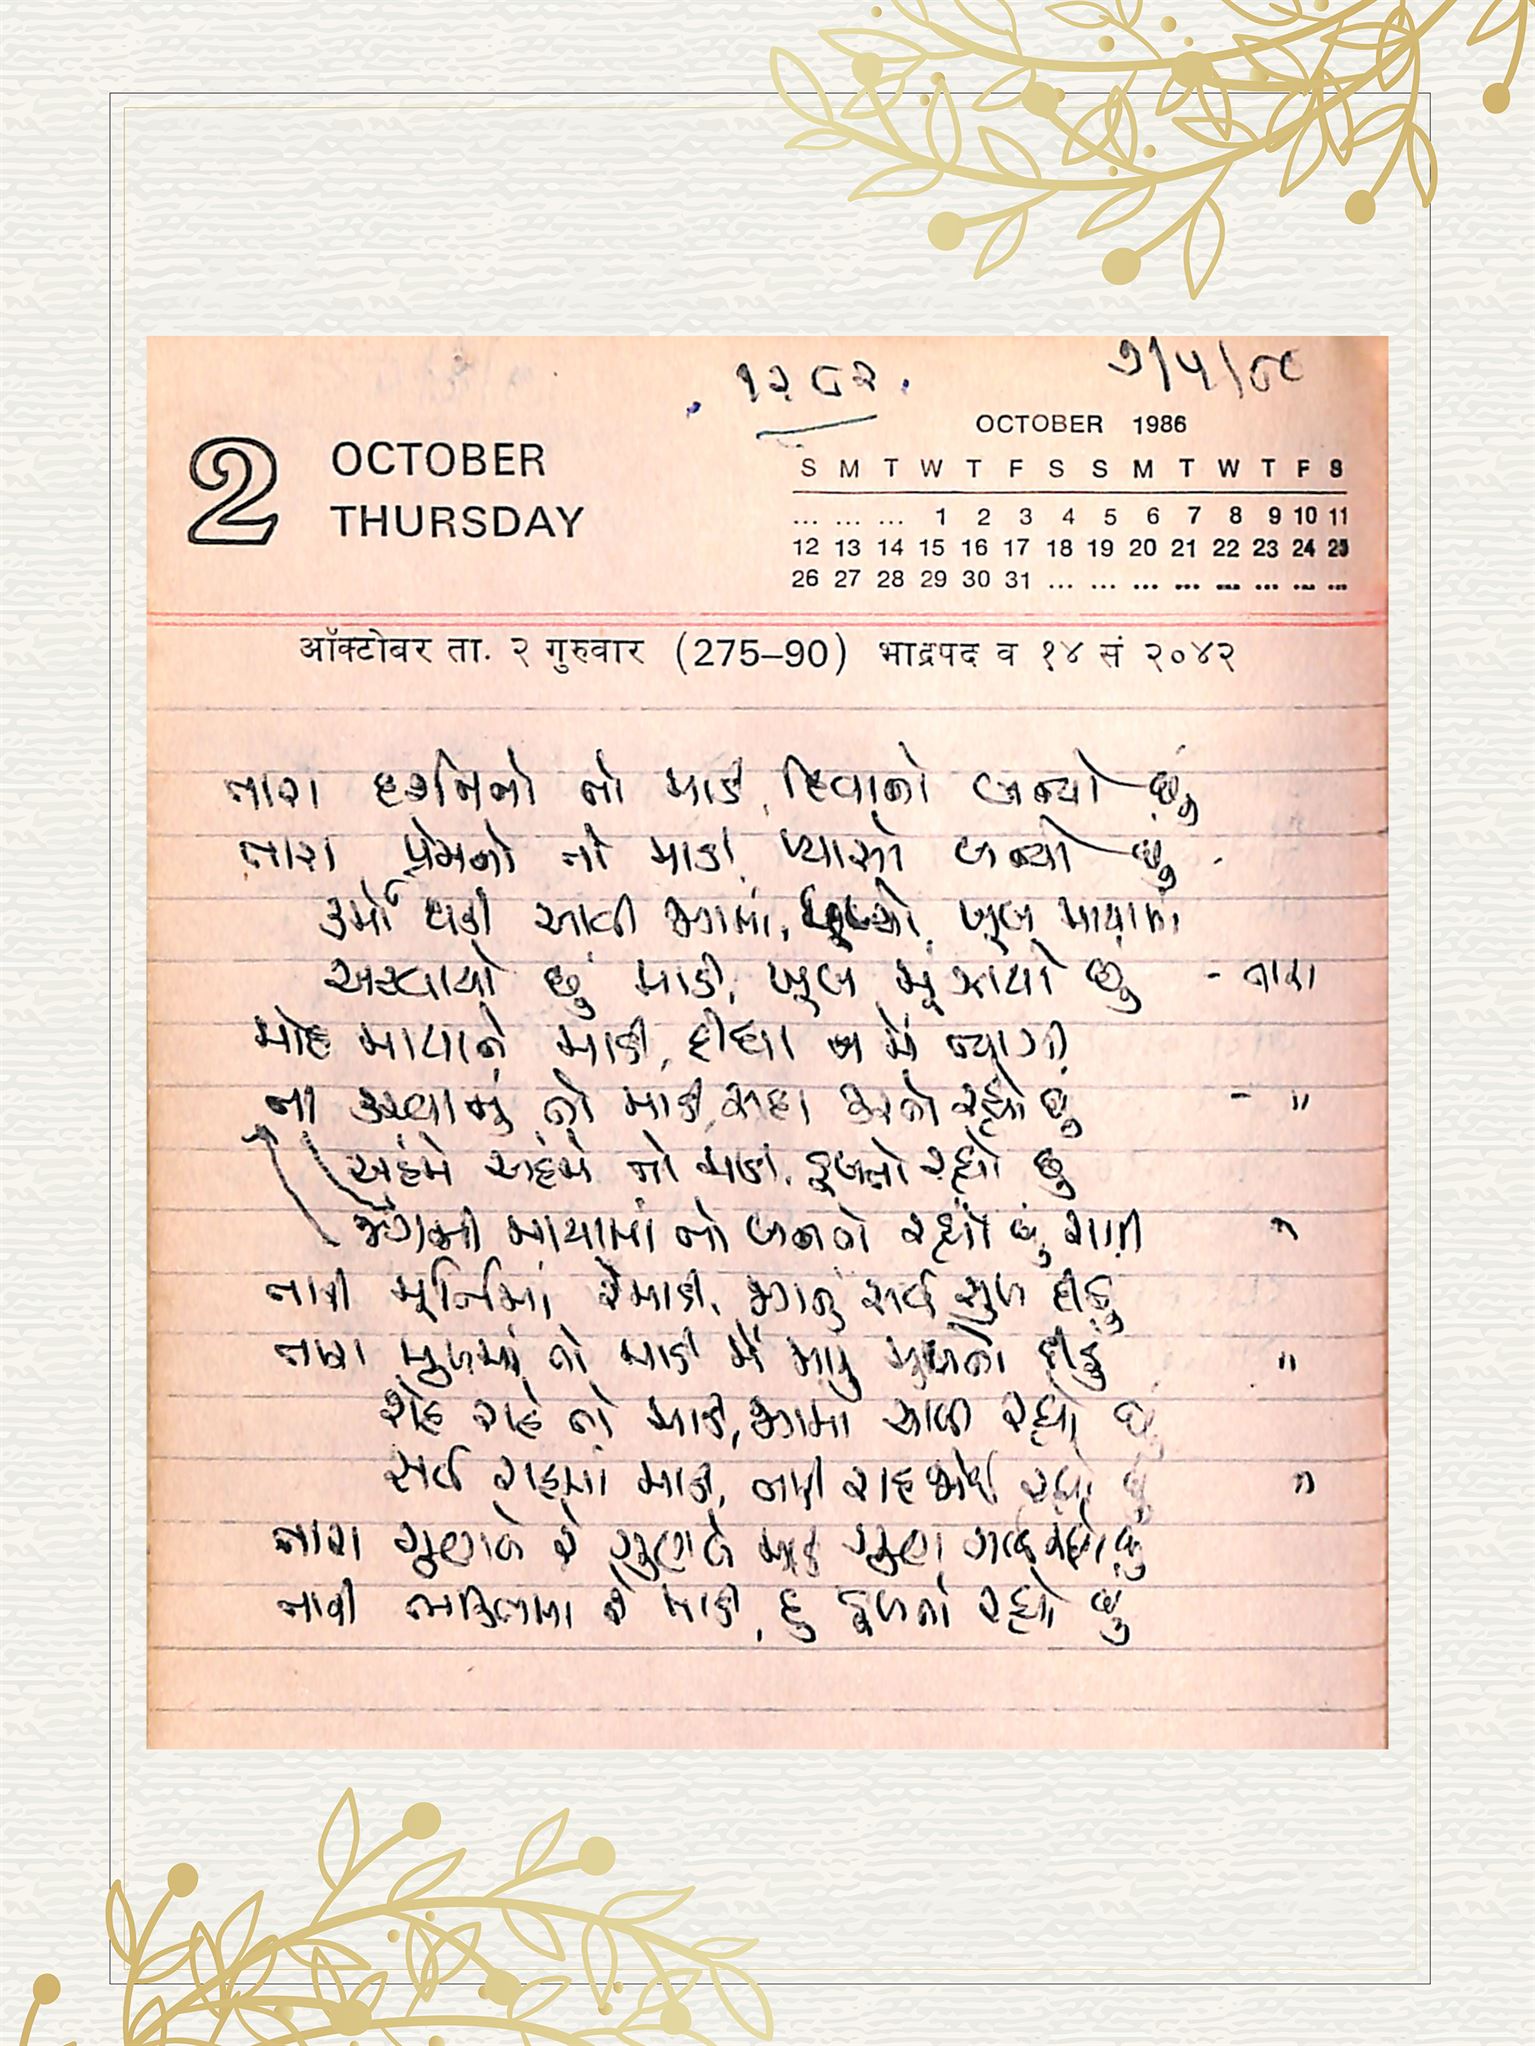 ૧૨૮૨
૭/૫/૮૮
2 OCTOBER
THURSDAY
OCTOBER 1986
S M T W T F S S M T W T F S
... ... ... 1 2 3 4 5 6 7 8 9 10 11
12 13 14 15 16 17 18 19 20 21 22 23 24 25
26 27 28 29 30 31 ... ... ... ... ... ... ... ...
ऑक्टोबर ता. २ गुरुवार (275–90) भाद्रपद व १४ सं २०४२
તારા દર્શનનો તો માડી, દિવાનો બન્યો છું
તારા પ્રેમનો તો માડી, પ્યાસો બન્યો છું
કર્મો ઘડી આવી જગમાં, ખૂબ માયામાં
અટવાયો છું માડી, ખૂબ મૂંઝાયો છું - તારા
મોહ માયાને માડી, દીધા ન મેં ત્યાગી
ના કરવાનું તો માડી, સદા કરતો રહ્યો છું - "
અહંમે અહંમે તો માડી, ડૂબતો રહ્યો છું
જગની માયામાં તો બનતો રહ્યો છું રાગી "
તારી મૂર્તિમાં રે માડી, જગનું સર્વ સુખ દીઠું
તારા મુખમાં તો માડી મેં મારું મુખતો દીઠું "
રાહે રાહે તો માડી, જગમાં ચાલી રહ્યો છું
સર્વ રાહમાં માડી, તારી રાહ જોઈ રહ્યો છું "
તારા ગુણલે રે ગુણલે માડી ગુણલા ગાઈ રહ્યો છું
તારી ભક્તિમાં રે માડી, હું ડૂબતો રહ્યો છું